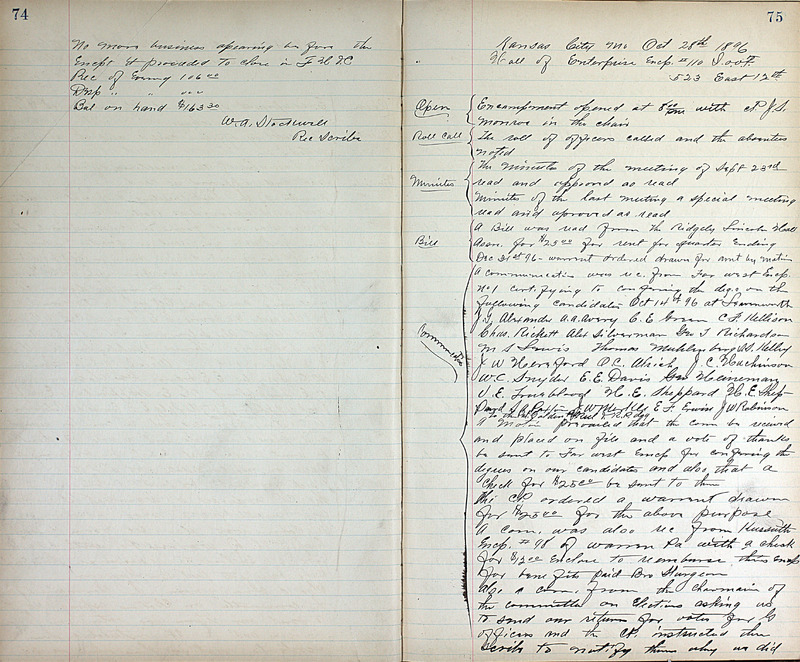 74
No more business apearing be fore the
Encpt it proceeded to close in F H & C
Rec of Evening 106 00
Disp " " 00 0
Bal on hand $163 30
W. A. Stockwell
Rec Scribe
75
Kansas City Mo Oct 28th 1896
Hall of Enterprise Encp. #110 I.O.O.F.
523 East 12th
Open
Encampment opened at with CP J. S.
Monroe in the chair
Roll Call
The roll of officers called and the absentees
noted
Minutes
The Minutes of the meeting of Sept 23rd
read and approved as read
Minutes of the last meeting a special meeting
read and aproved as read
Bill
A Bill was read from the Ridgely Lincoln Hall
Assn. for $25 00 for rent for quarter Ending
Dec 31st 96 - warrent ordered drawn for amt by motion
Communication
A communication was rec. from Far west Encp.
No 1 certifying to confering the degs. on the
following candidates Oct 14th 96 at
J. S. Alexander A. A. Avery C. E. Green C. F. Hellison
Chas. Rickett Alex Silverman Geo T Richardson
M S Lewis Thomas S. Kelley
J W Hereford O. C. Alrich J. C. Hutchinson
W. C. Snyder E. E. Davis Geo Heineman
J. E. H. E. Sheppard H. E. Shep-
pard E. F. Erwin J W Robinson
A Motion prevailed that the com be received
and placed on file and a vote of thanks
be sent to Far west Encp for confering the
degrees on our candidates and also that a
Check for $25 00 be sent to them
The CP ordered a warrent drawn
for $25 00 for the above purpose
A com. was also rec from Kossuth
Encp. #98 of Warren Pa with a check
for $12 00 Enclose to reemburse this Encp
for bene fits paid Bro Sturgeon
Also a com. from the chairman of
the committee on Elections asking us
to send our returns for votes for G
officers and the CP. instructed the
Scribe to notify them why we did